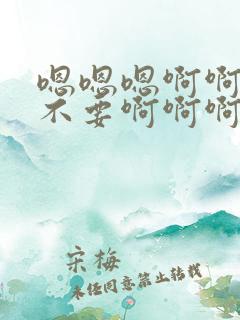 嗯嗯嗯啊啊
不要啊啊啊
宋梅
未经同意禁止转载